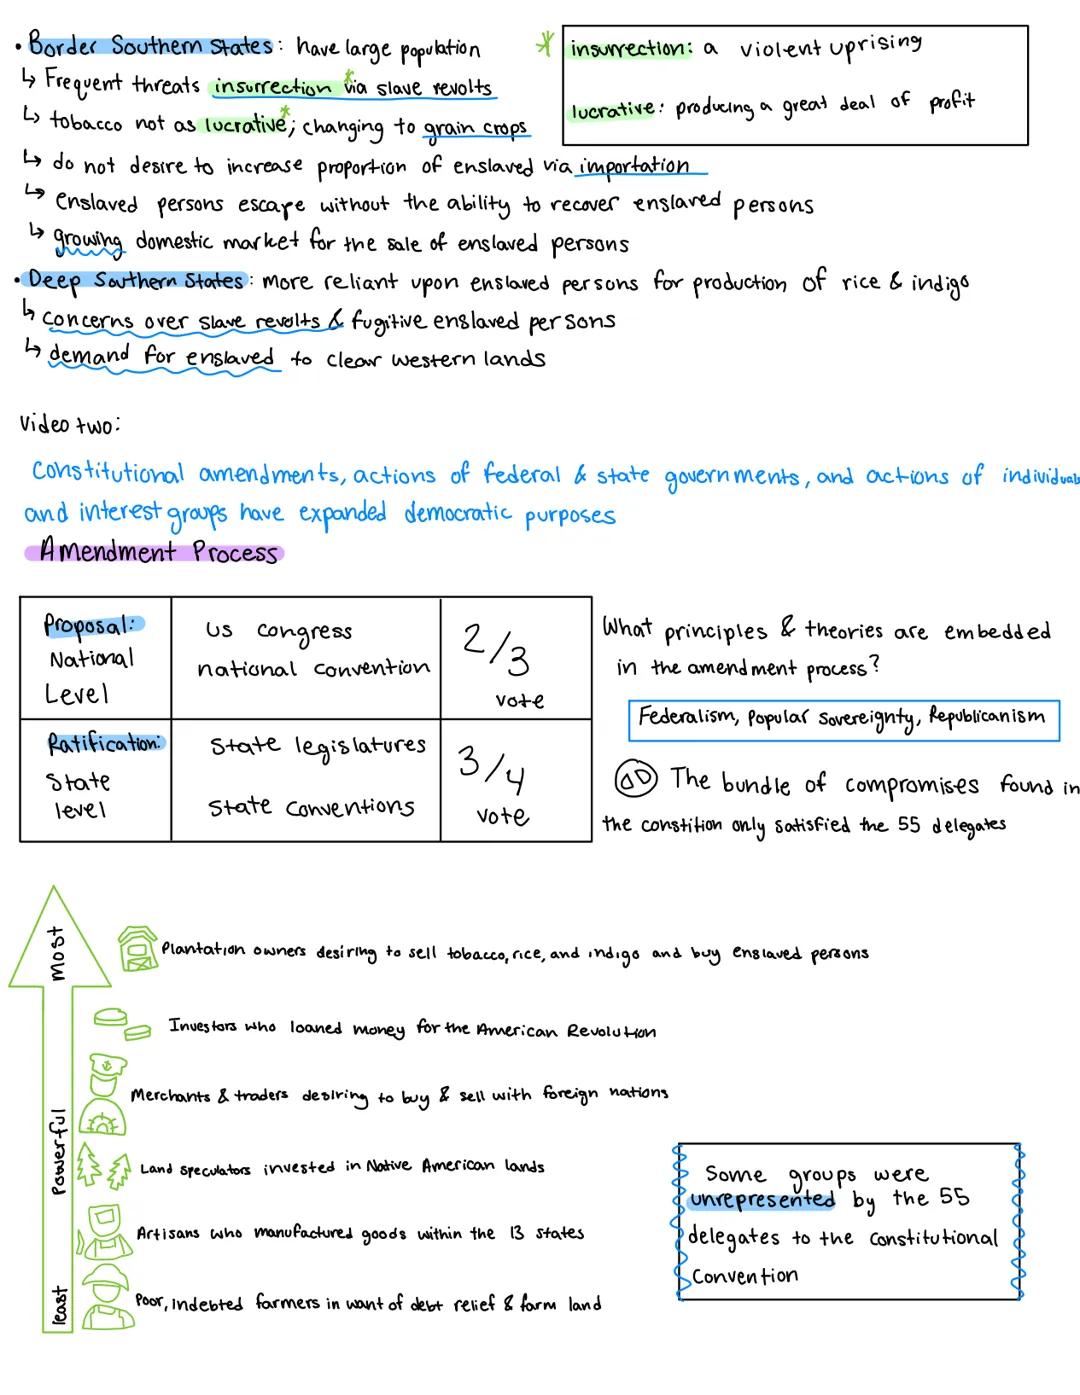 • Border Southern States: have large population
↳ Frequent threats insurrection* via slave revolts
↳ tobacco not as lucrative*; changing to grain crops
↳ do not desire to increase proportion of enslaved via importation
↳ enslaved persons escape without the ability to recover enslaved persons
↳ growing domestic market for the sale of enslaved persons
* insurrection: a violent uprising
lucrative: producing a great deal of profit
• Deep Southern States: more reliant upon enslaved persons for production of rice & indigo
↳ concerns over slave revolts & fugitive enslaved persons
↳ demand for enslaved to clear western lands
Video two:
Constitutional amendments, actions of federal & state governments, and actions of individuals
and interest groups have expanded democratic purposes
Amendment Process
Proposal:
National
Level
US congress
national convention
2/3
vote
Ratification:
State
level
State legislatures
State conventions
3/4
vote
What principles & theories are embedded
in the amendment process?
Federalism, Popular Sovereignty, Republicanism
The bundle of compromises found in
the constition only satisfied the 55 delegates
most
Powerful
least
Plantation owners desiring to sell tobacco, rice, and indigo and buy enslaved persons
Investors who loaned money for the American Revolution
Merchants & traders desiring to buy & sell with foreign nations
Land speculators invested in Native American lands
Artisans who manufactured goods within the 13 states
Poor, Indebted farmers in want of debt relief & farm land
Some groups were
unrepresented by the 55
delegates to the Constitutional
Convention